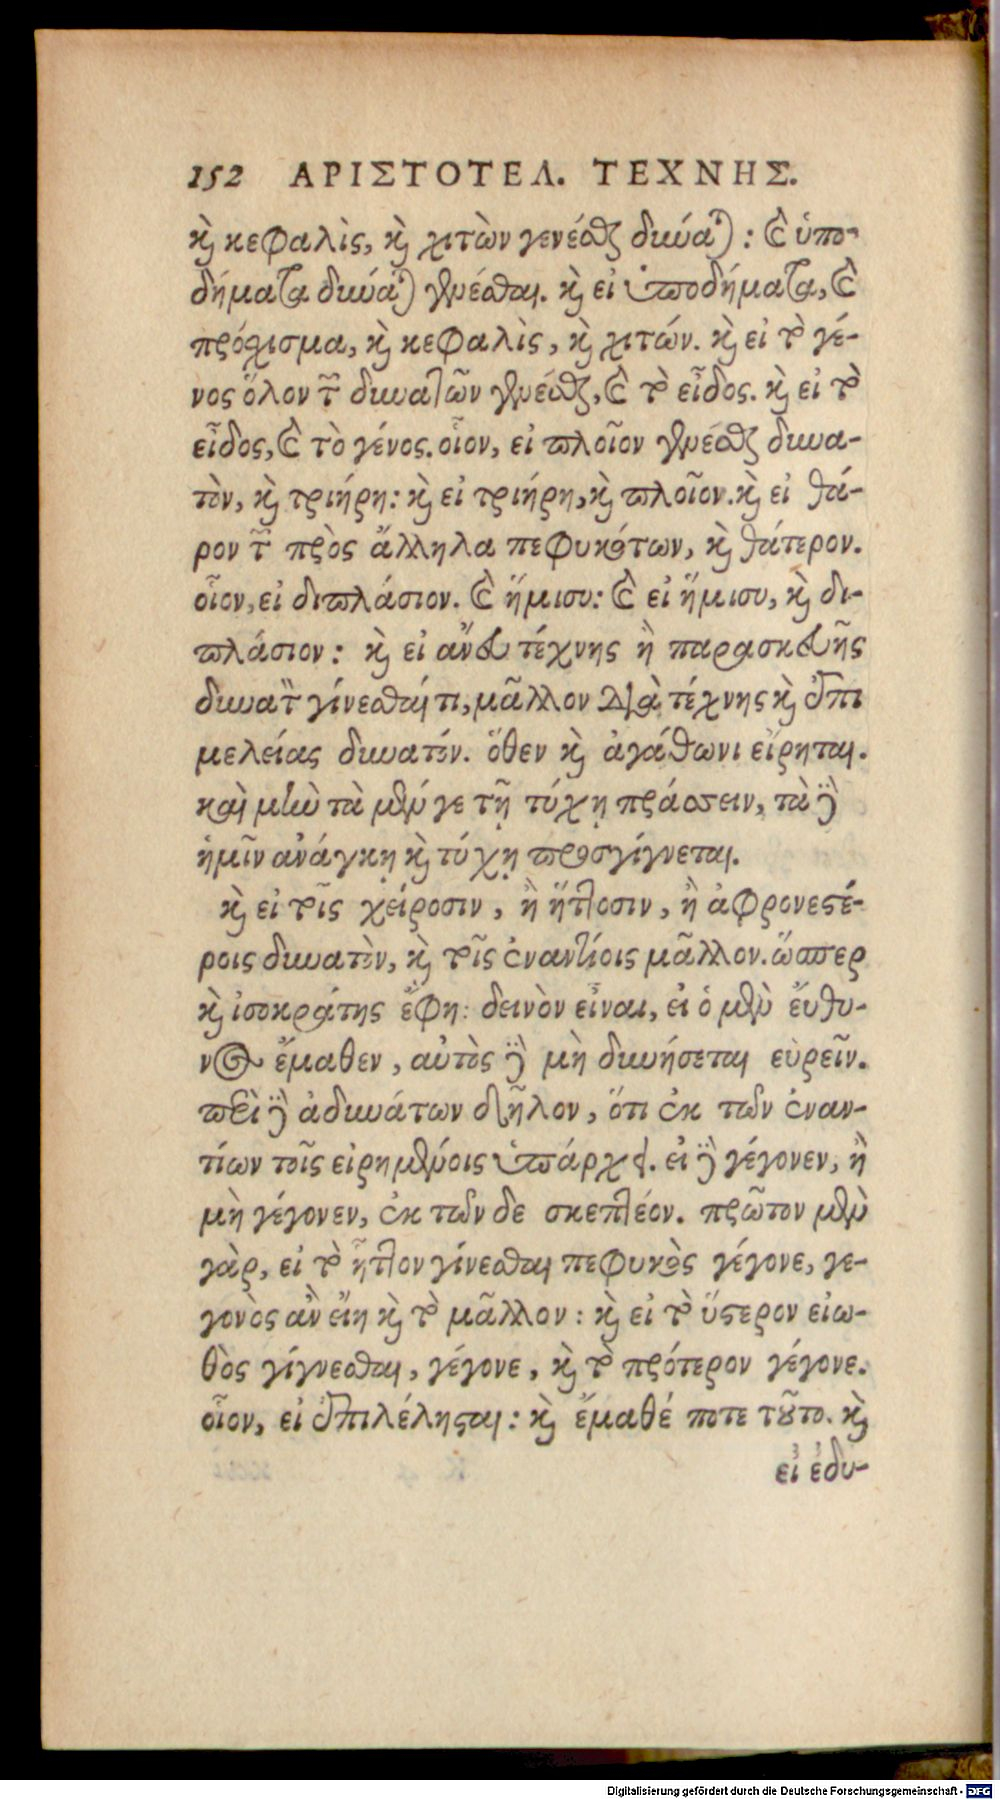 152 ΑΡΙΣΤΟΤΕΛ. ΤΕΧΝΗΣ.
καὶ κεφαλὶς, καὶ χιτὼν γενέσθαι δυνά): καὶ ὑπο-
δήματα δυνά) γενέσθαι. καὶ εἰ ὑποδήματα, καὶ
πρόχισμα, καὶ κεφαλὶς, καὶ χιτών. καὶ εἰ τὸ γέ-
νος ὅλον τῶν δυνατῶν γενέσθαι, καὶ τὸ εἶδος. καὶ εἰ τὸ
εἶδος, καὶ τὸ γένος. οἷον, εἰ πλοῖον γενέσθαι δυνα-
τὸν, καὶ τριήρη: καὶ εἰ τριήρη, καὶ πλοῖον. καὶ εἰ θά-
ρον τῶν πρὸς ἄλληλα πεφυκότων, καὶ θάτερον.
οἷον, εἰ διπλάσιον. καὶ ἥμισυ: καὶ εἰ ἥμισυ, καὶ δι-
πλάσιον: καὶ εἰ ἄνευ τέχνης ἢ παρασκευῆς
δυνατὸν γίνεσθαί τι, μᾶλλον διὰ τέχνης καὶ ἐπι
μελείας δυνατόν. ὅθεν καὶ ἀγάθωνι εἴρηται.
καὶ μὴν τὰ μέν γε τῇ τύχῃ πράσσειν, τὰ δὲ
ἡμῖν ἀνάγκῃ καὶ τύχῃ προσγίγνεται.
καὶ εἰ τοῖς χείροσιν, ἢ ἥττοσιν, ἢ ἀφρονεστέ-
ροις δυνατὸν, καὶ τοῖς ἐναντίοις μᾶλλον. ὥσπερ
καὶ ἰσοκράτης ἔφη: δεινὸν εἶναι, εἰ ὁ μὲν ἔυθυ-
νος ἔμαθεν, αὐτὸς δὲ μὴ δυνήσεται εὑρεῖν.
περὶ δὲ ἀδυνάτων δῆλον, ὅτι ἐκ τῶν ἐναν-
τίων τοῖς εἰρημένοις ὑπάρχει. εἰ δὲ γέγονεν, ἢ
μὴ γέγονεν, ἐκ τῶν δε σκεπτέον. πρῶτον μὲν
γὰρ, εἰ τὸ ἧττον γίνεσθαι πεφυκὸς γέγονε, γε-
γονὸς ἂν εἴη καὶ τὸ μᾶλλον: καὶ εἰ τὸ ὕστερον εἰω-
θὸς γίγνεσθαι, γέγονε, καὶ τὸ πρότερον γέγονε.
οἷον, εἰ ἐπιλέλησται: καὶ ἔμαθέ ποτε τοῦτο. καὶ
εἰ ἐδυ-
Digitalisierung gefördert durch die Deutsche Forschungsgemeinschaft - DFG